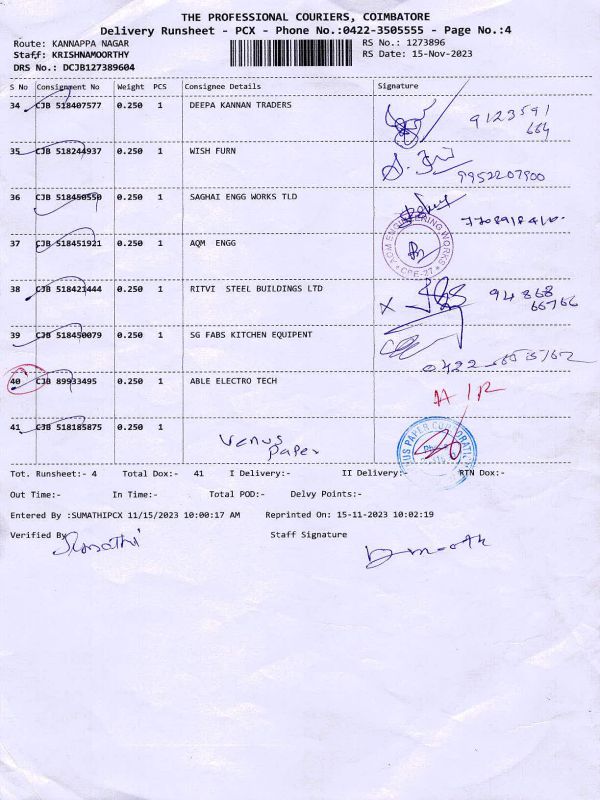 THE PROFESSIONAL COURIERS, COIMBATORE
Delivery Runsheet - PCX - Phone No.:0422-3505555 - Page No.:4
Route: KANNAPPA NAGAR RS No.: 1273896
Staff: KRISHNAMOORTHY RS Date: 15-Nov-2023
DRS No.: DCJB127389604
S No Consignment No Weight PCS Consignee Details Signature
34 CJB 518407577 0.250 1 DEEPA KANNAN TRADERS
9123591
664
35 CJB 518244937 0.250 1 WISH FURN
9952207900
36 CJB 518450550 0.250 1 SAGHAI ENGG WORKS TLD
37 CJB 518451921 0.250 1 AQM ENGG
AQM ENGINEERING WORKS
CBE-27
38 CJB 518421444 0.250 1 RITVI STEEL BUILDINGS LTD
X 94868
66766
39 CJB 518450079 0.250 1 SG FABS KITCHEN EQUIPENT
40 CJB 89933495 0.250 1 ABLE ELECTRO TECH
41 CJB 518185875 0.250 1
Venus
paper
Tot. Runsheet:- 4 Total Dox:- 41 I Delivery:- II Delivery:- RTN Dox:-
Out Time:- In Time:- Total POD:- Delvy Points:-
Entered By :SUMATHIPCX 11/15/2023 10:00:17 AM Reprinted On: 15-11-2023 10:02:19
Verified By Staff Signature
Sumathi